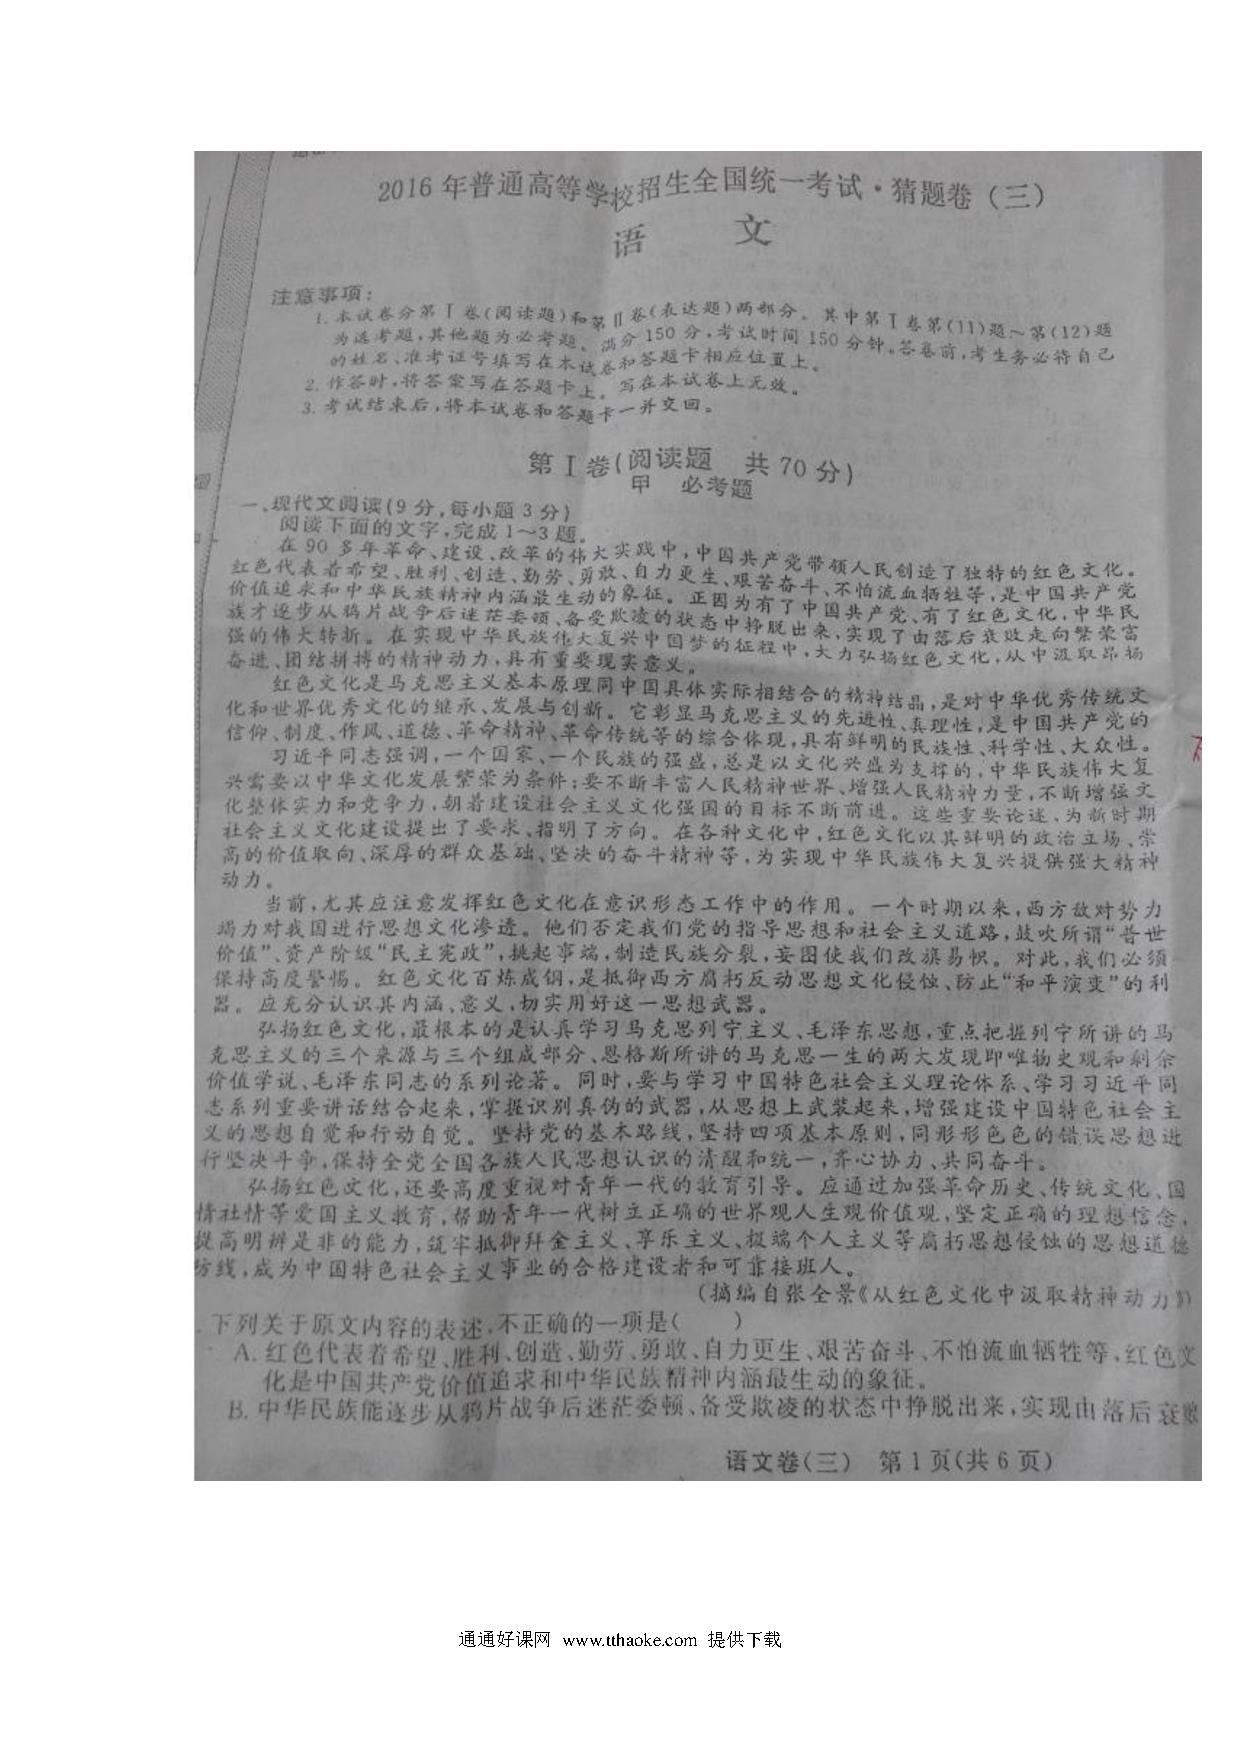 2016年普通高等学校招生全国统一考试·猜题卷(三)
语 文
注意事项:
1.本试卷分第Ⅰ卷(阅读题)和第Ⅱ卷(表达题)两部分。其中第Ⅰ卷第(11)题～第(12)题
为选考题,其他题为必考题。满分150分,考试时间150分钟。答卷前,考生务必将自己
的姓名、准考证号填写在本试卷和答题卡相应位置上。
2.作答时,将答案写在答题卡上。写在本试卷上无效。
3.考试结束后,将本试卷和答题卡一并交回。
第Ⅰ卷(阅读题 共70分)
甲 必考题
一、现代文阅读(9分,每小题3分)
阅读下面的文字,完成1～3题。
在90多年革命、建设、改革的伟大实践中,中国共产党带领人民创造了独特的红色文化。
红色代表着希望、胜利、创造、勤劳、勇敢、自力更生、艰苦奋斗、不怕流血牺牲等,是中国共产党
价值追求和中华民族精神内涵最生动的象征。正因为有了中国共产党、有了红色文化,中华民
族才逐步从鸦片战争后迷茫委顿、备受欺凌的状态中挣脱出来,实现了由落后衰败走向繁荣富
强的伟大转折。在实现中华民族伟大复兴中国梦的征程中,大力弘扬红色文化,从中汲取昂扬
奋进、团结拼搏的精神动力,具有重要现实意义。
红色文化是马克思主义基本原理同中国具体实际相结合的精神结晶,是对中华优秀传统文
化和世界优秀文化的继承、发展与创新。它彰显马克思主义的先进性、真理性,是中国共产党的
信仰、制度、作风、道德、革命精神、革命传统等的综合体现,具有鲜明的民族性、科学性、大众性。
习近平同志强调,一个国家、一个民族的强盛,总是以文化兴盛为支撑的,中华民族伟大复
兴需要以中华文化发展繁荣为条件;要不断丰富人民精神世界、增强人民精神力量,不断增强文
化整体实力和竞争力,朝着建设社会主义文化强国的目标不断前进。这些重要论述,为新时期
社会主义文化建设提出了要求、指明了方向。在各种文化中,红色文化以其鲜明的政治立场、崇
高的价值取向、深厚的群众基础、坚决的奋斗精神等,为实现中华民族伟大复兴提供强大精神
动力。
当前,尤其应注意发挥红色文化在意识形态工作中的作用。一个时期以来,西方敌对势力
竭力对我国进行思想文化渗透。他们否定我们党的指导思想和社会主义道路,鼓吹所谓“普世
价值”、资产阶级“民主宪政”,挑起事端,制造民族分裂,妄图使我们改旗易帜。对此,我们必须
保持高度警惕。红色文化百炼成钢,是抵御西方腐朽反动思想文化侵蚀、防止“和平演变”的利
器。应充分认识其内涵、意义,切实用好这一思想武器。
弘扬红色文化,最根本的是认真学习马克思列宁主义、毛泽东思想,重点把握列宁所讲的马
克思主义的三个来源与三个组成部分、恩格斯所讲的马克思一生的两大发现即唯物史观和剩余
价值学说、毛泽东同志的系列论著。同时,要与学习中国特色社会主义理论体系、学习习近平同
志系列重要讲话结合起来,掌握识别真伪的武器,从思想上武装起来,增强建设中国特色社会主
义的思想自觉和行动自觉。坚持党的基本路线,坚持四项基本原则,同形形色色的错误思想进
行坚决斗争,保持全党全国各族人民思想认识的清醒和统一,齐心协力、共同奋斗。
弘扬红色文化,还要高度重视对青年一代的教育引导。应通过加强革命历史、传统文化、国
情社情等爱国主义教育,帮助青年一代树立正确的世界观人生观价值观,坚定正确的理想信念,
提高明辨是非的能力,筑牢抵御拜金主义、享乐主义、极端个人主义等腐朽思想侵蚀的思想道德
防线,成为中国特色社会主义事业的合格建设者和可靠接班人。
(摘编自张全景《从红色文化中汲取精神动力》)
.下列关于原文内容的表述,不正确的一项是( )
A.红色代表着希望、胜利、创造、勤劳、勇敢、自力更生、艰苦奋斗、不怕流血牺牲等,红色文
化是中国共产党价值追求和中华民族精神内涵最生动的象征。
B.中华民族能逐步从鸦片战争后迷茫委顿、备受欺凌的状态中挣脱出来,实现由落后衰败
语文卷(三) 第1页(共6页)
通通好课网 www.tthaoke.com 提供下载